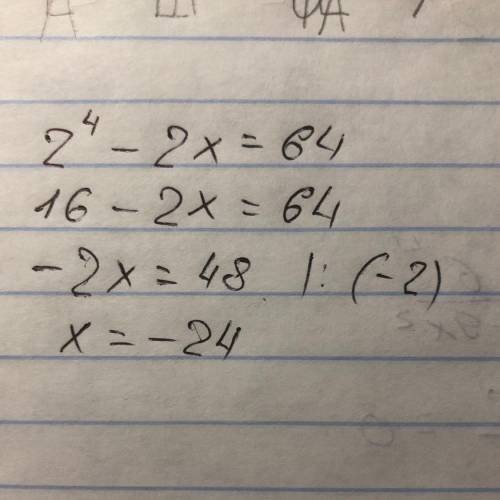 2⁴ - 2x = 64
16 - 2x = 64
-2x = 48 |: (-2)
x = -24